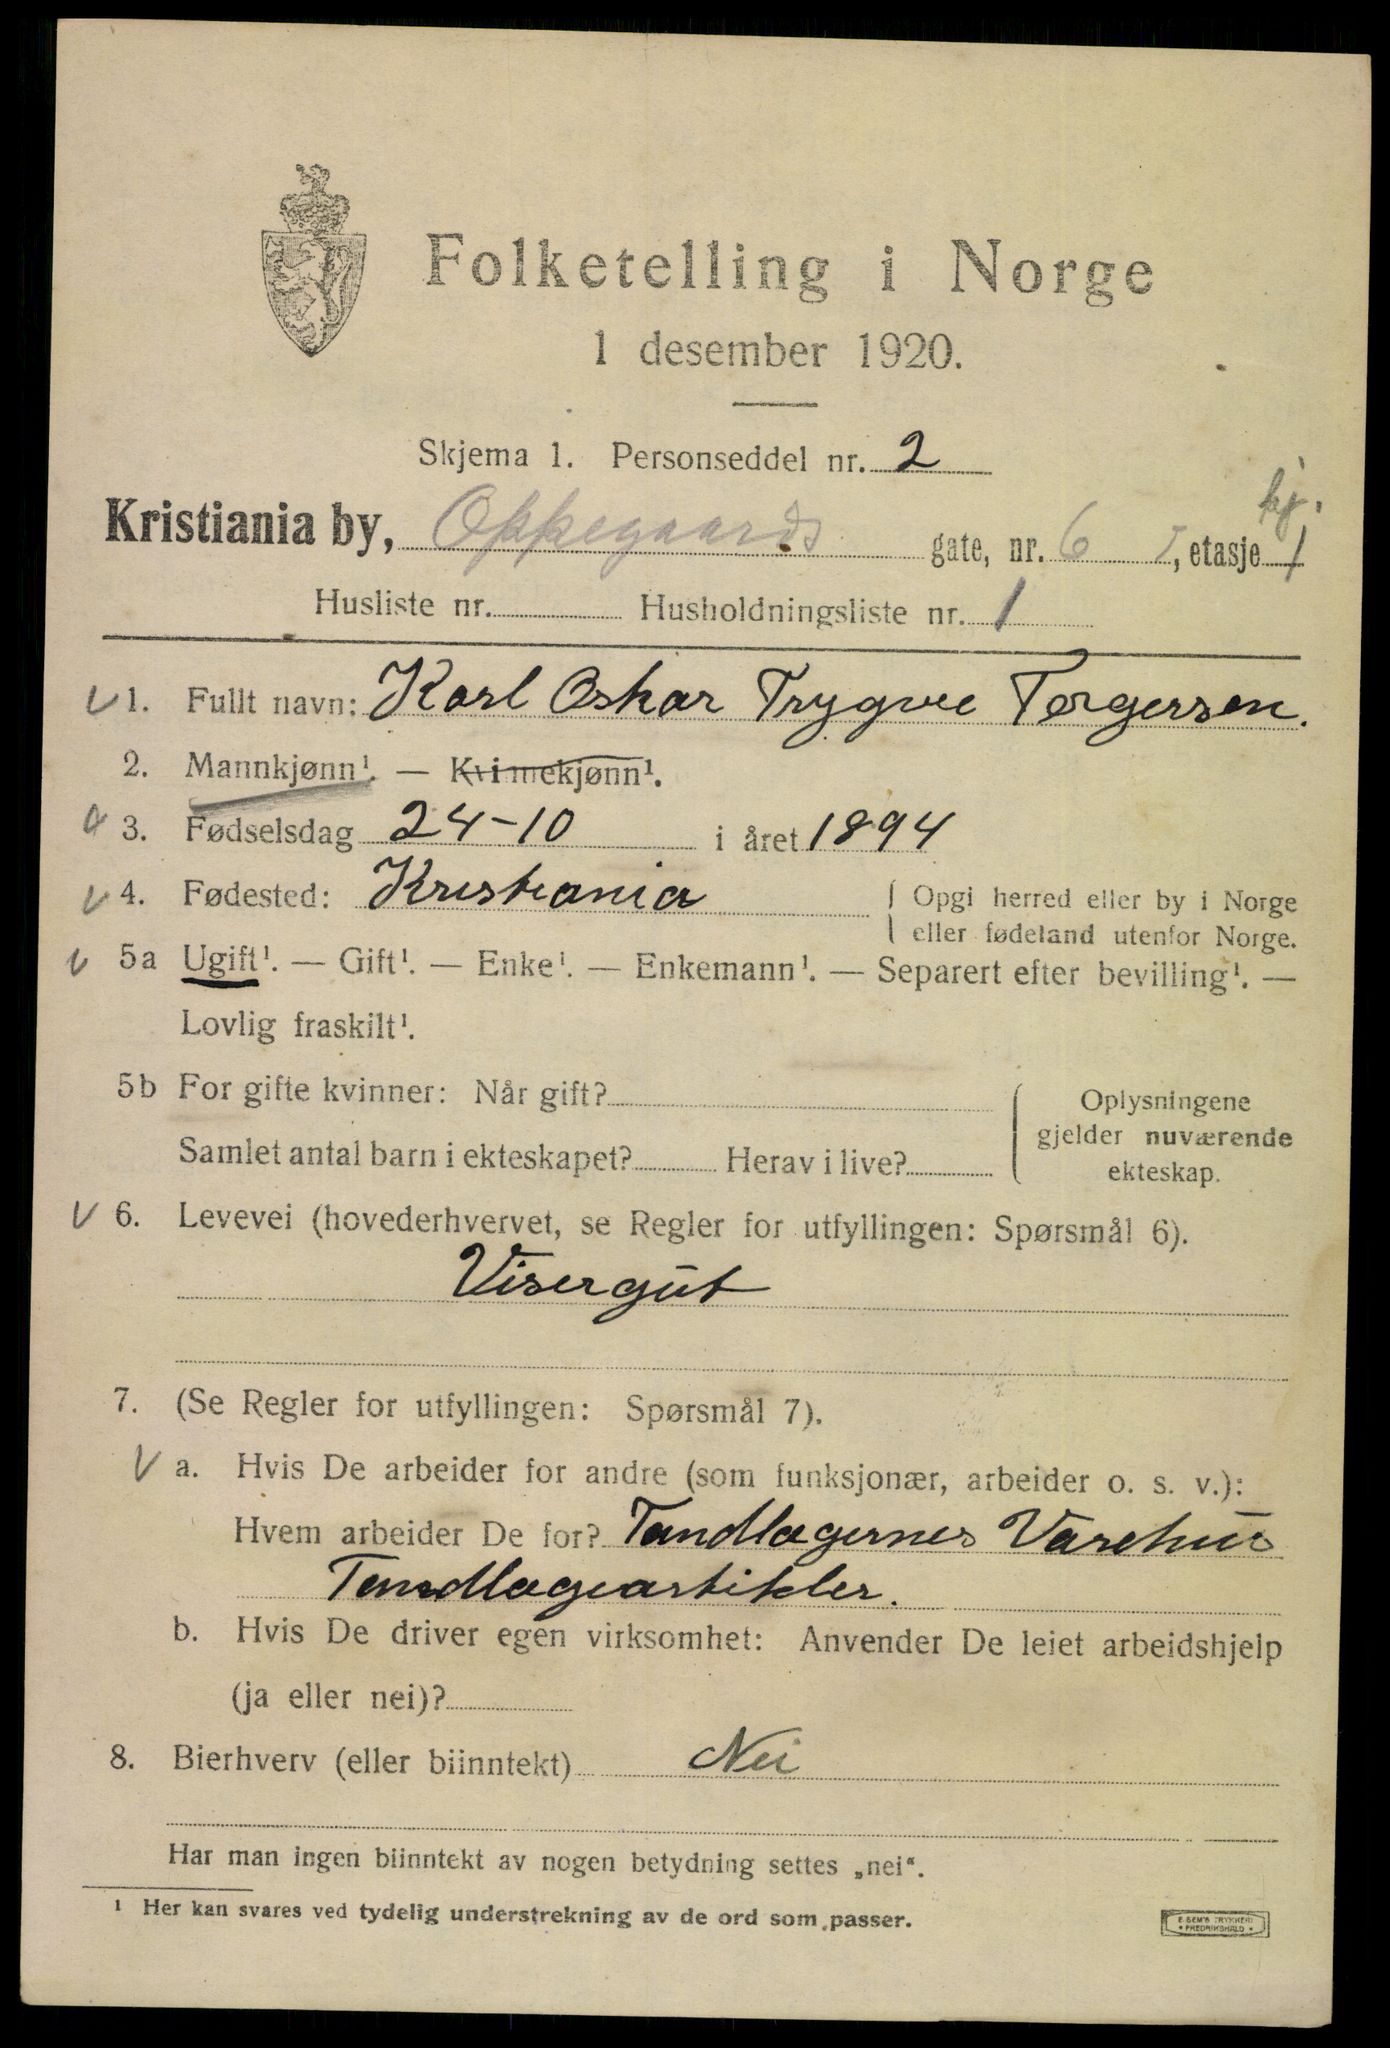 Folketelling i Norge
1 desember 1920.
Skjema 1. Personseddel nr. 2
Kristiania by, Oppegaards gate, nr. 6 I, etasje 1
Husliste nr. Husholdningsliste nr. 1
1. Fullt navn: Karl Oskar Trygve Torgersen.
2. Mannkjønn¹. — Kvinnekjønn¹.
3. Fødselsdag 24-10 i året 1894
4. Fødested: Kristiania
Opgi herred eller by i Norge
eller fødeland utenfor Norge.
5a Ugift¹. — Gift¹. — Enke¹. — Enkemann¹. — Separert efter bevilling¹. —
Lovlig fraskilt¹.
5b For gifte kvinner: Når gift?
Samlet antal barn i ekteskapet? Herav i live?
Oplysningene
gjelder nuværende
ekteskap.
6. Levevei (hovederhvervet, se Regler for utfyllingen: Spørsmål 6).
Visergut
7. (Se Regler for utfyllingen: Spørsmål 7).
a. Hvis De arbeider for andre (som funksjonær, arbeider o. s. v.):
Hvem arbeider De for? Tandlægernes Varehus
Tandlægeartikler.
b. Hvis De driver egen virksomhet: Anvender De leiet arbeidshjelp
(ja eller nei)?
8. Bierhverv (eller biinntekt) Nei
Har man ingen biinntekt av nogen betydning settes „nei“.
¹ Her kan svares ved tydelig understrekning av de ord som passer.
E. SEM'S TRYKKERI
• FREDRIKSHALD •